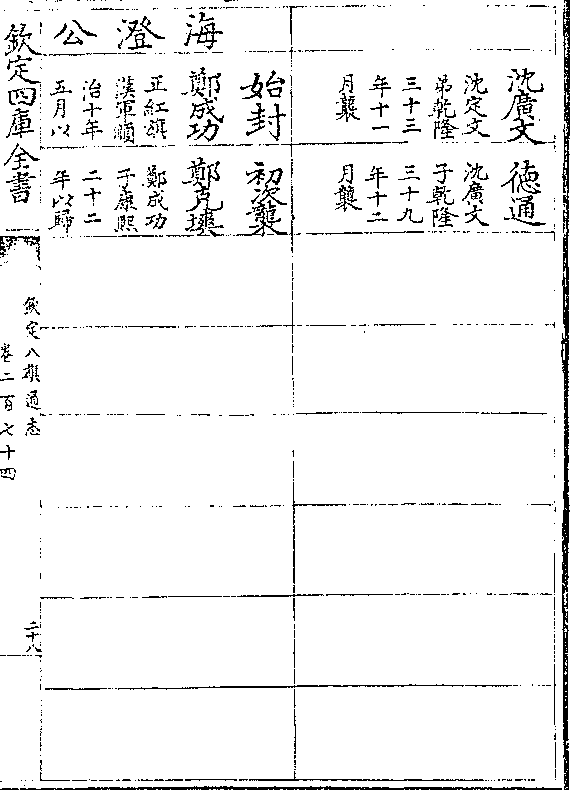 沈廣文
沈定文
弟乾隆
三十三
年十一
月襲
徳通
沈廣文
子乾隆
三十九
年十二
月襲
海澄公
始封
鄭成功
正紅旗
漢軍順
治十年
五月以
初次襲
鄭克塽
鄭成功
子康熙
二十二
年以歸
欽定四庫全書
欽定八旗通志
卷二百七十四
二十八